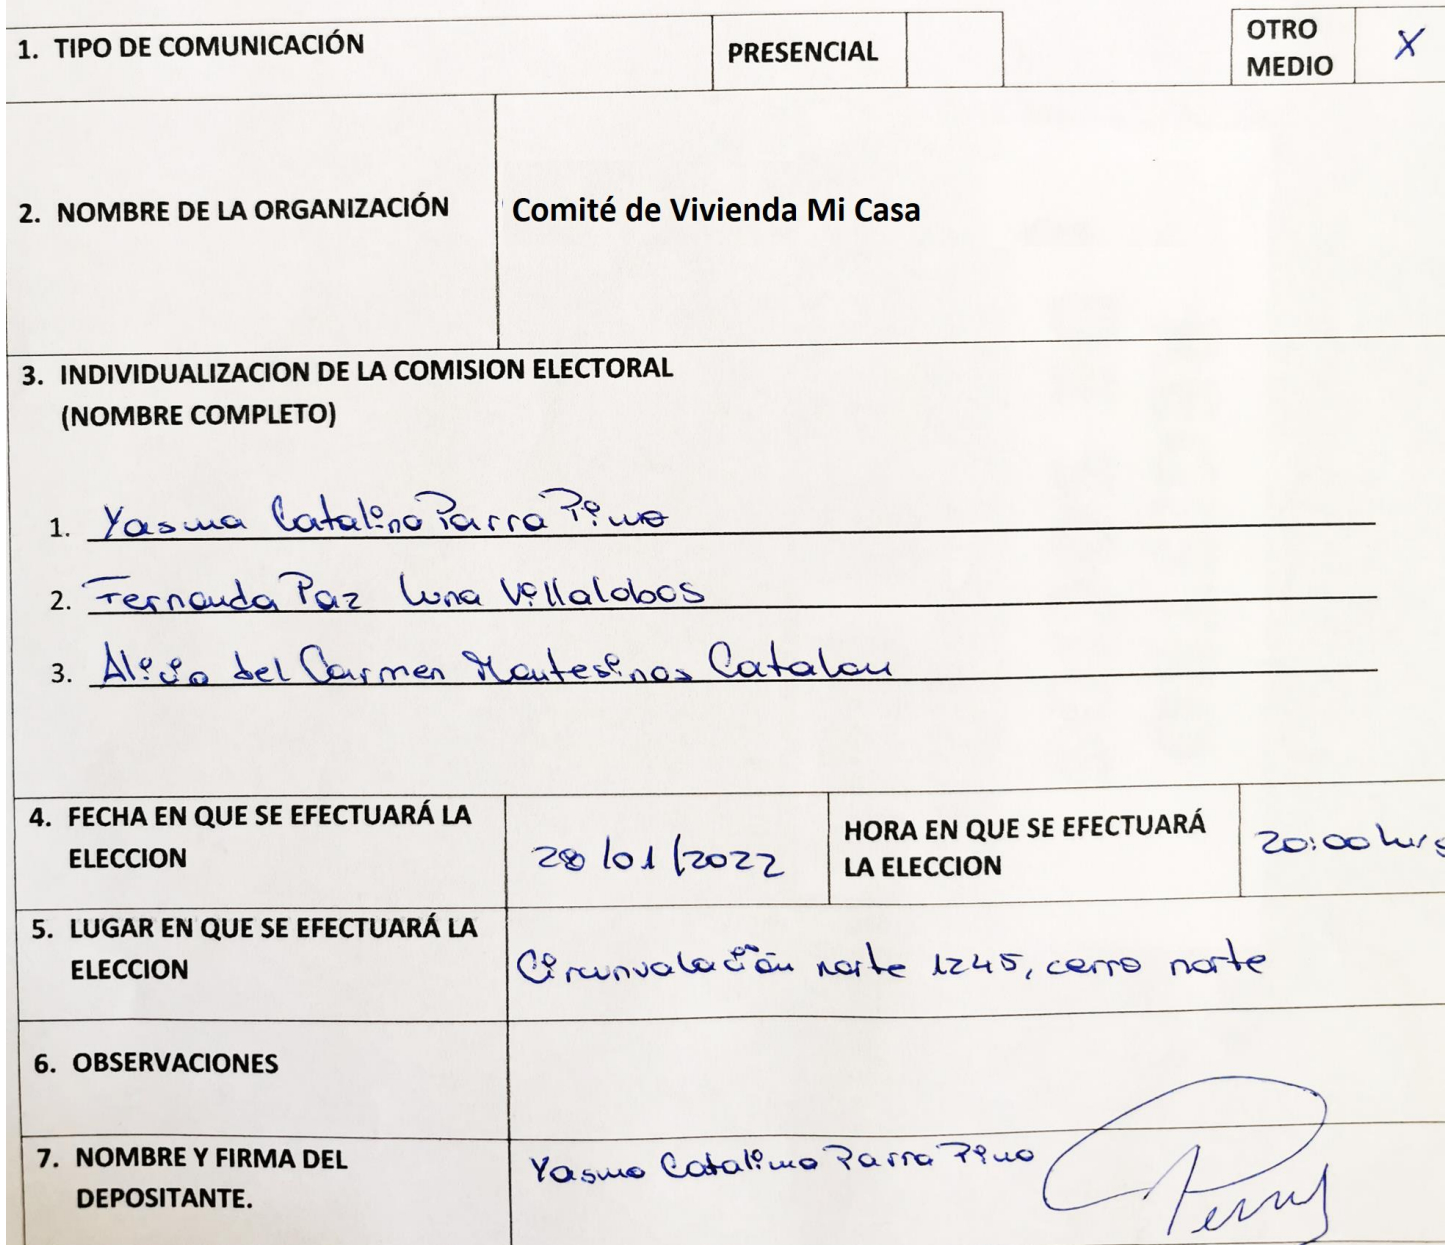 1. TIPO DE COMUNICACIÓN PRESENCIAL OTRO MEDIO X
2. NOMBRE DE LA ORGANIZACIÓN Comité de Vivienda Mi Casa
3. INDIVIDUALIZACION DE LA COMISION ELECTORAL
(NOMBRE COMPLETO)
1. Yasma Catalina Parra Pino
2. Fernanda Paz Luna Villalobos
3. Alicia del Carmen Montesinos Catalan
4. FECHA EN QUE SE EFECTUARÁ LA ELECCION 28/01/2022 HORA EN QUE SE EFECTUARÁ LA ELECCION 20:00 hrs
5. LUGAR EN QUE SE EFECTUARÁ LA ELECCION Circunvalación norte 1245, cerro norte
6. OBSERVACIONES
7. NOMBRE Y FIRMA DEL DEPOSITANTE. Yasma Catalina Parra Pino